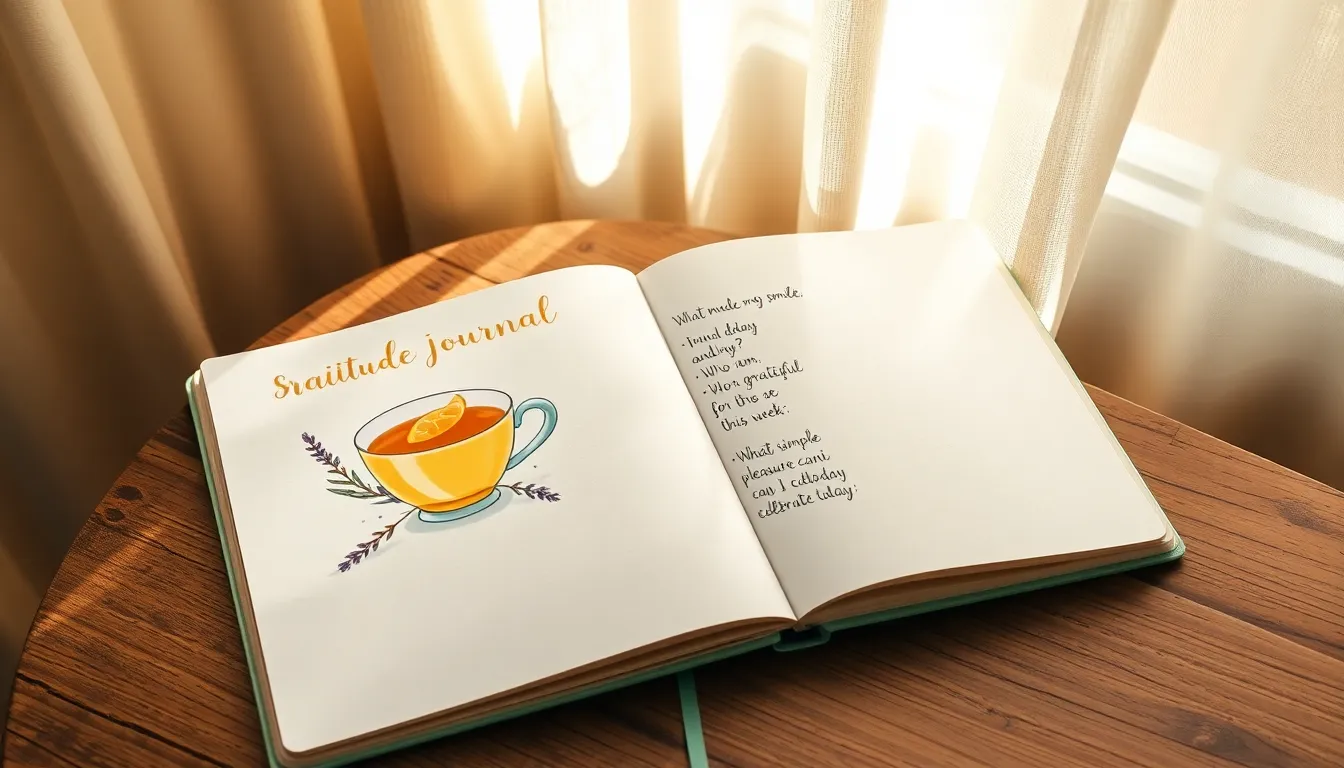 Sraiitude journal
What made my smile,
audiny?
• Who ism,
• Wor grateful
for this se
this week:.
• What simple
pleasure cani
can I cdloday
celbrate laday;